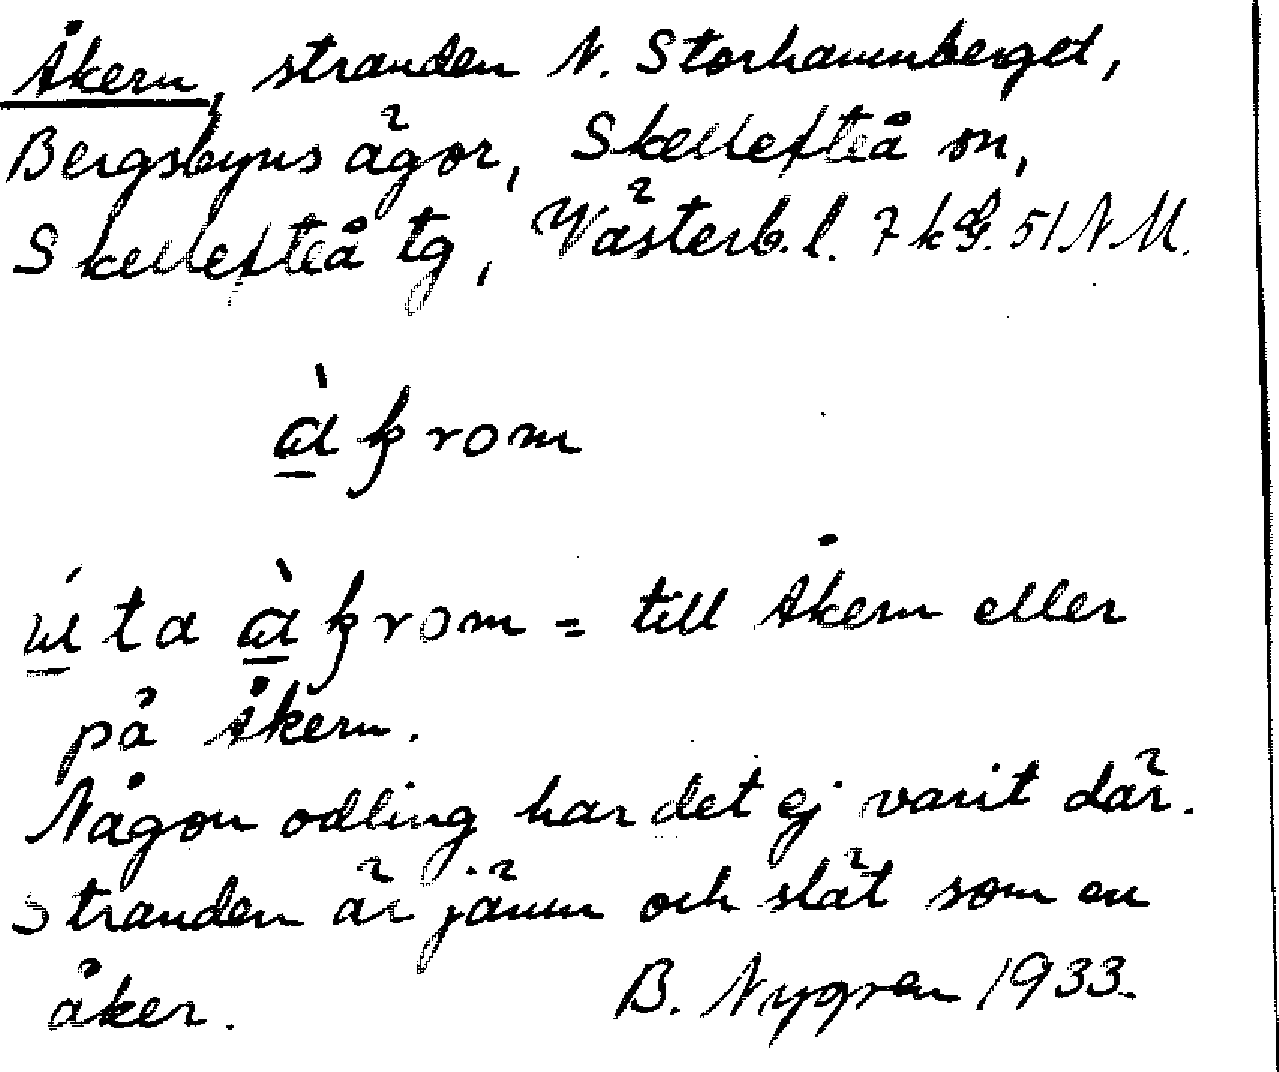 Åkern, stranden N. Storhamnberget,
Bergsbyns ägor, Skellefteå sn,
Skellefteå tg, Västerb. l. 7 k G. 51 N M.
àkrom
úta àkrom = till Åkern eller
på Åkern.
Någon odling har det ej varit där.
Stranden är jämn och slät som en
åker. B. Nygren 1933.